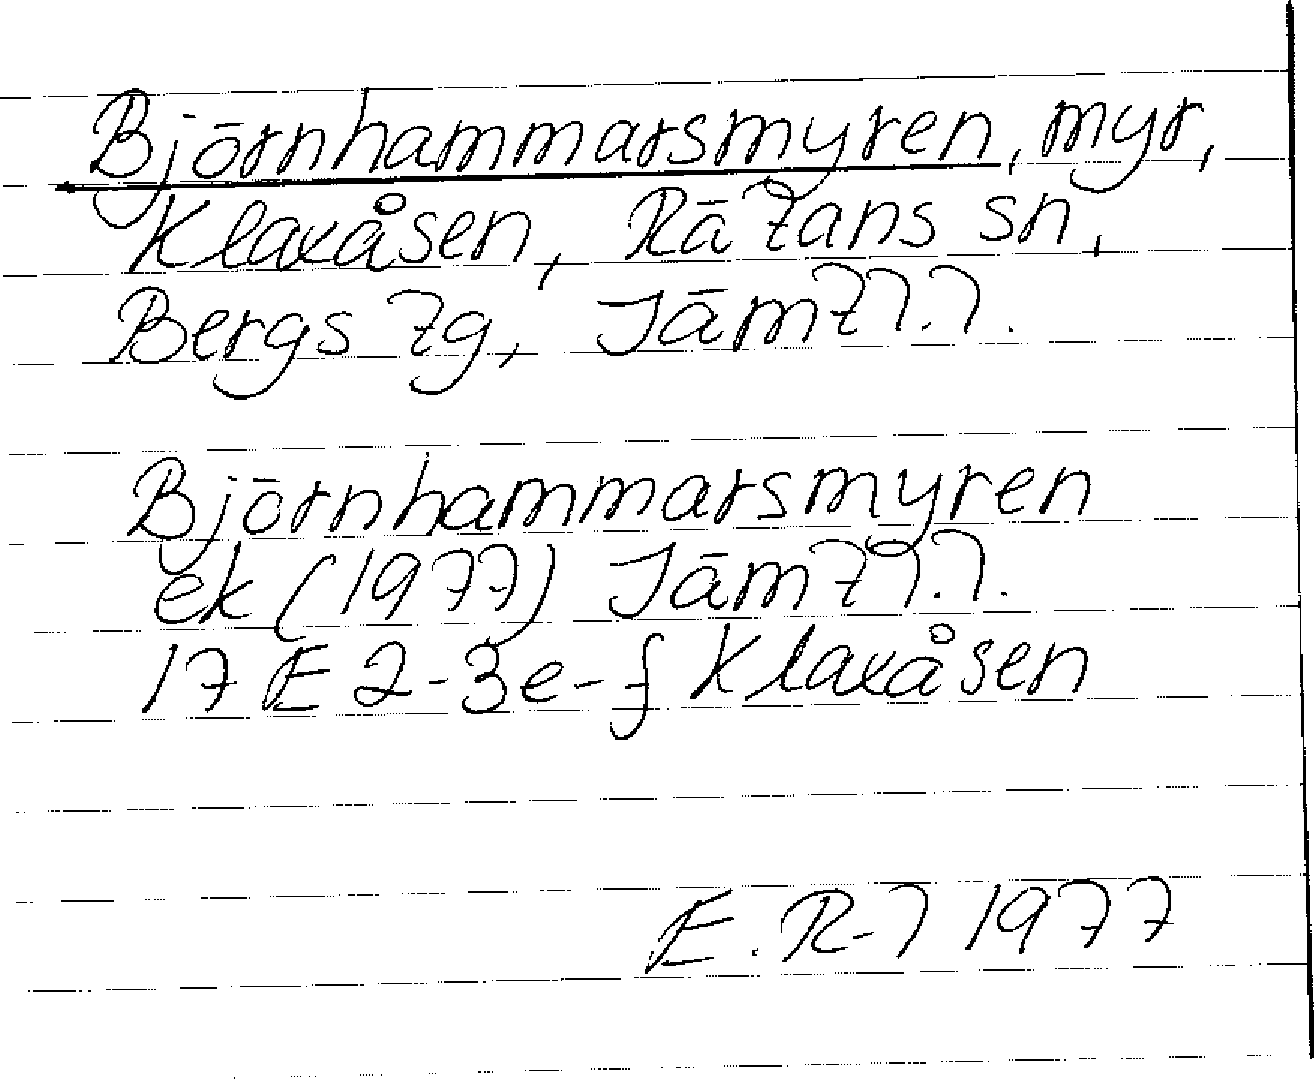 Björnhammarsmyren, myr,
Klaxåsen, Rätans sn,
Bergs tg, Jämtl.l.
Björnhammarsmyren
ek (1977) Jämtl.l.
17 E 2-3e-f Klaxåsen
E. R-l 1977